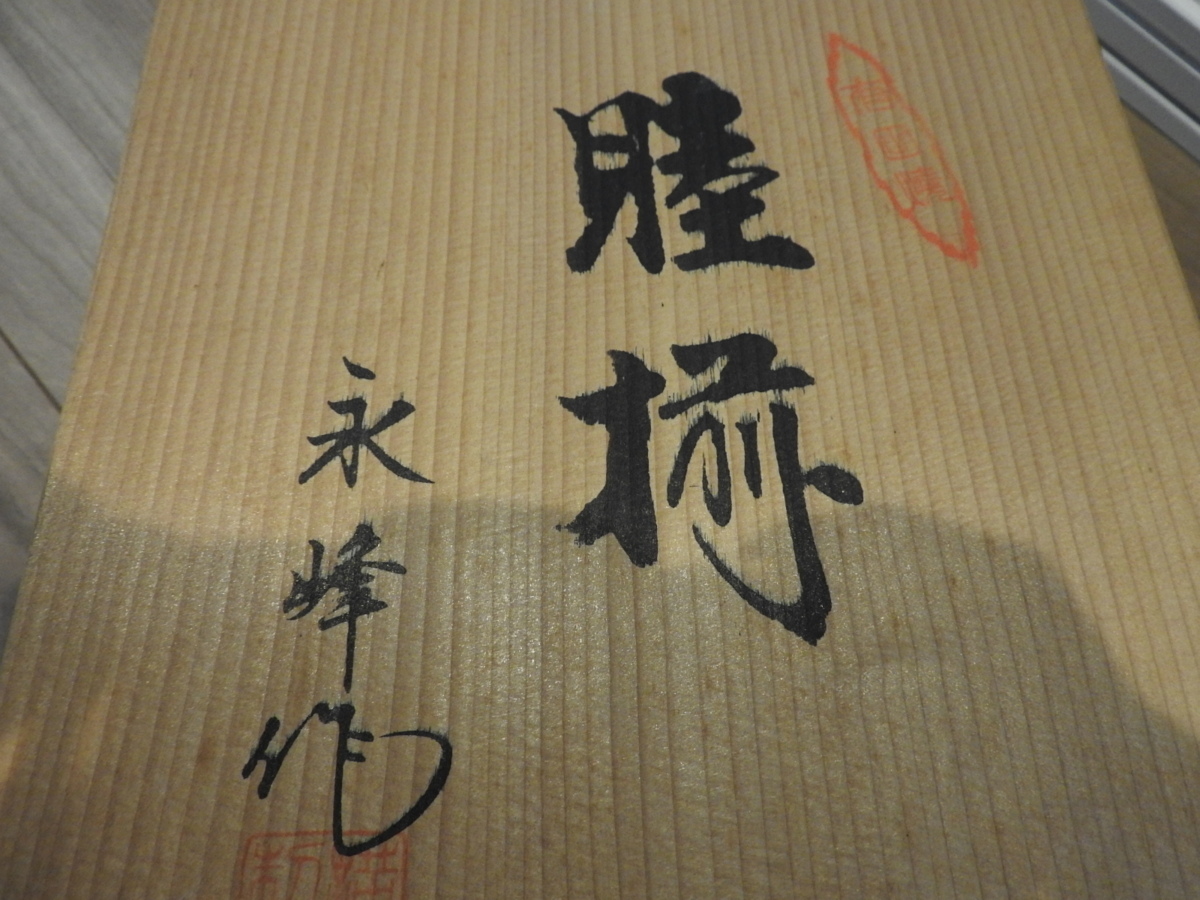 有田焼
睦揃
永峰作